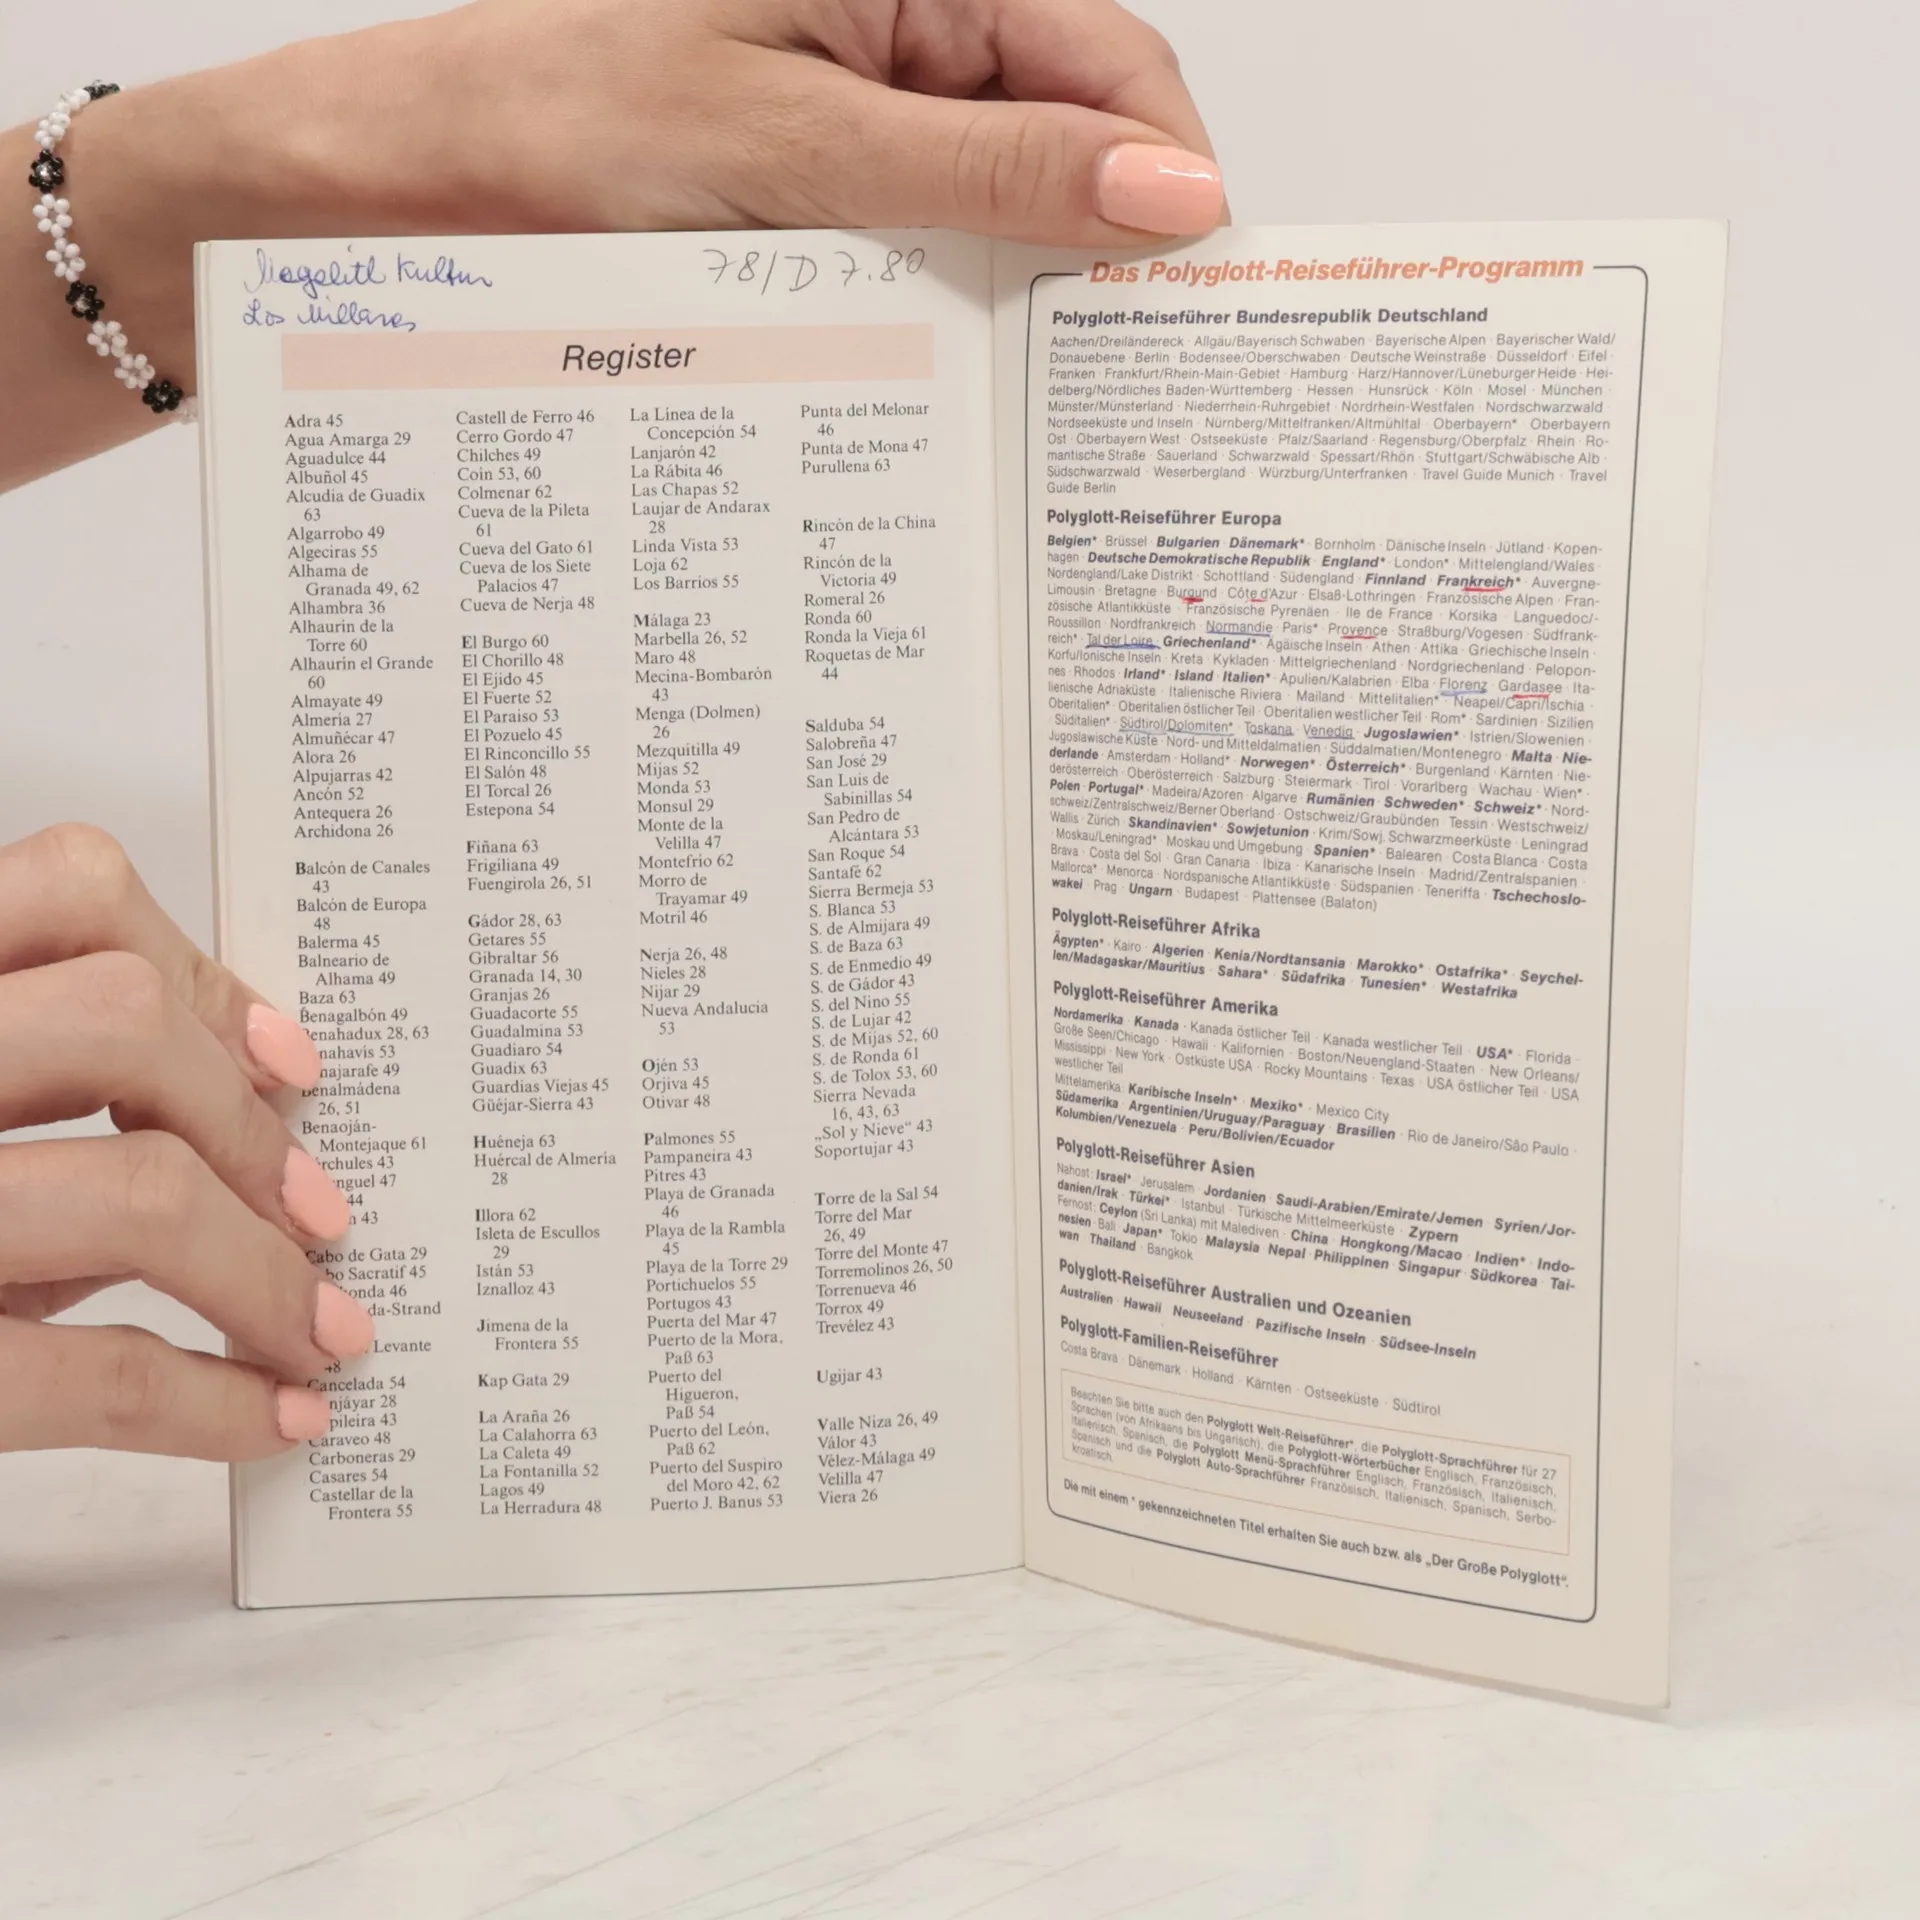 Megalith Kultur
Los Millares
78/D 7.80
Register
Adra 45
Agua Amarga 29
Aguadulce 44
Albuñol 45
Alcudia de Guadix
63
Algarrobo 49
Algeciras 55
Alhama de
Granada 49, 62
Alhambra 36
Alhaurin de la
Torre 60
Alhaurin el Grande
60
Almayate 49
Almeria 27
Almuñécar 47
Alora 26
Alpujarras 42
Ancón 52
Antequera 26
Archidona 26
Balcón de Canales
43
Balcón de Europa
48
Balerma 45
Balneario de
Alhama 49
Baza 63
Benagalbón 49
enahadux 28, 63
nahavis 53
najarafe 49
Benalmádena
26, 51
Benaoján-
Montejaque 61
rchules 43
nguel 47
44
n 43
Cabo de Gata 29
bo Sacratif 45
onda 46
da-Strand
Levante
48
Cancelada 54
njáyar 28
pileira 43
Caraveo 48
Carboneras 29
Casares 54
Castellar de la
Frontera 55
Castell de Ferro 46
Cerro Gordo 47
Chilches 49
Coin 53, 60
Colmenar 62
Cueva de la Pileta
61
Cueva del Gato 61
Cueva de los Siete
Palacios 47
Cueva de Nerja 48
El Burgo 60
El Chorillo 48
El Ejido 45
El Fuerte 52
El Paraiso 53
El Pozuelo 45
El Rinconcillo 55
El Salón 48
El Torcal 26
Estepona 54
Fiñana 63
Frigiliana 49
Fuengirola 26, 51
Gádor 28, 63
Getares 55
Gibraltar 56
Granada 14, 30
Granjas 26
Guadacorte 55
Guadalmina 53
Guadiaro 54
Guadix 63
Guardias Viejas 45
Güéjar-Sierra 43
Huéneja 63
Huércal de Almería
28
Illora 62
Isleta de Escullos
29
Istán 53
Iznalloz 43
Jimena de la
Frontera 55
Kap Gata 29
La Araña 26
La Calahorra 63
La Caleta 49
La Fontanilla 52
Lagos 49
La Herradura 48
La Línea de la
Concepción 54
Lanjarón 42
La Rábita 46
Las Chapas 52
Laujar de Andarax
28
Linda Vista 53
Loja 62
Los Barrios 55
Málaga 23
Marbella 26, 52
Maro 48
Mecina-Bombarón
43
Menga (Dolmen)
26
Mezquitilla 49
Mijas 52
Monda 53
Monsul 29
Monte de la
Velilla 47
Montefrio 62
Morro de
Trayamar 49
Motril 46
Nerja 26, 48
Nieles 28
Nijar 29
Nueva Andalucia
53
Ojén 53
Orjiva 45
Otivar 48
Palmones 55
Pampaneira 43
Pitres 43
Playa de Granada
46
Playa de la Rambla
45
Playa de la Torre 29
Portichuelos 55
Portugos 43
Puerta del Mar 47
Puerto de la Mora,
Paß 63
Puerto del
Higueron,
Paß 54
Puerto del León,
Paß 62
Puerto del Suspiro
del Moro 42, 62
Puerto J. Banus 53
Punta del Melonar
46
Punta de Mona 47
Purullena 63
Rincón de la China
47
Rincón de la
Victoria 49
Romeral 26
Ronda 60
Ronda la Vieja 61
Roquetas de Mar
44
Salduba 54
Salobreña 47
San José 29
San Luis de
Sabinillas 54
San Pedro de
Alcántara 53
San Roque 54
Santafé 62
Sierra Bermeja 53
S. Blanca 53
S. de Almijara 49
S. de Baza 63
S. de Enmedio 49
S. de Gádor 43
S. del Nino 55
S. de Lujar 42
S. de Mijas 52, 60
S. de Ronda 61
S. de Tolox 53, 60
Sierra Nevada
16, 43, 63
„Sol y Nieve“ 43
Soportujar 43
Torre de la Sal 54
Torre del Mar
26, 49
Torre del Monte 47
Torremolinos 26, 50
Torrenueva 46
Torrox 49
Trevélez 43
Ugijar 43
Valle Niza 26, 49
Válor 43
Vélez-Málaga 49
Velilla 47
Viera 26
Das Polyglott-Reiseführer-Programm
Polyglott-Reiseführer Bundesrepublik Deutschland
Aachen/Dreiländereck · Allgäu/Bayerisch Schwaben · Bayerische Alpen · Bayerischer Wald/
Donauebene · Berlin · Bodensee/Oberschwaben · Deutsche Weinstraße · Düsseldorf · Eifel ·
Franken · Frankfurt/Rhein-Main-Gebiet · Hamburg · Harz/Hannover/Lüneburger Heide · Hei-
delberg/Nördliches Baden-Württemberg · Hessen · Hunsrück · Köln · Mosel · München ·
Münster/Münsterland · Niederrhein-Ruhrgebiet · Nordrhein-Westfalen · Nordschwarzwald ·
Nordseeküste und Inseln · Nürnberg/Mittelfranken/Altmühltal · Oberbayern* · Oberbayern
Ost · Oberbayern West · Ostseeküste · Pfalz/Saarland · Regensburg/Oberpfalz · Rhein · Ro-
mantische Straße · Sauerland · Schwarzwald · Spessart/Rhön · Stuttgart/Schwäbische Alb ·
Südschwarzwald · Weserbergland · Würzburg/Unterfranken · Travel Guide Munich · Travel
Guide Berlin
Polyglott-Reiseführer Europa
Belgien* · Brüssel · Bulgarien · Dänemark* · Bornholm · Dänische Inseln · Jütland · Kopen-
hagen · Deutsche Demokratische Republik · England* · London* · Mittelengland/Wales ·
Nordengland/Lake Distrikt · Schottland · Südengland · Finnland · Frankreich* · Auvergne-
Limousin · Bretagne · Burgund · Côte d'Azur · Elsaß-Lothringen · Französische Alpen · Fran-
zösische Atlantikküste · Französische Pyrenäen · Ile de France · Korsika · Languedoc/-
Roussillon · Nordfrankreich · Normandie · Paris* · Provence · Straßburg/Vogesen · Südfrank-
reich* · Tal der Loire · Griechenland* · Ägäische Inseln · Athen · Attika · Griechische Inseln ·
Korfu/Ionische Inseln · Kreta · Kykladen · Mittelgriechenland · Nordgriechenland · Pelopon-
nes · Rhodos · Irland* · Island · Italien* · Apulien/Kalabrien · Elba · Florenz · Gardasee · Ita-
lienische Adriaküste · Italienische Riviera · Mailand · Mittelitalien* · Neapel/Capri/Ischia ·
Oberitalien* · Oberitalien östlicher Teil · Oberitalien westlicher Teil · Rom* · Sardinien · Sizilien
· Süditalien* · Südtirol/Dolomiten* · Toskana · Venedig · Jugoslawien* · Istrien/Slowenien ·
Jugoslawische Küste · Nord- und Mitteldalmatien · Süddalmatien/Montenegro · Malta · Nie-
derlande · Amsterdam · Holland* · Norwegen* · Österreich* · Burgenland · Kärnten · Nie-
derösterreich · Oberösterreich · Salzburg · Steiermark · Tirol · Vorarlberg · Wachau · Wien* ·
Polen · Portugal* · Madeira/Azoren · Algarve · Rumänien · Schweden* · Schweiz* · Nord-
schweiz/Zentralschweiz/Berner Oberland · Ostschweiz/Graubünden · Tessin · Westschweiz/
Wallis · Zürich · Skandinavien* · Sowjetunion · Krim/Sowj. Schwarzmeerküste · Leningrad
· Moskau/Leningrad* · Moskau und Umgebung · Spanien* · Balearen · Costa Blanca · Costa
Brava · Costa del Sol · Gran Canaria · Ibiza · Kanarische Inseln · Madrid/Zentralspanien ·
Mallorca* · Menorca · Nordspanische Atlantikküste · Südspanien · Teneriffa · Tschechoslo-
wakei · Prag · Ungarn · Budapest · Plattensee (Balaton)
Polyglott-Reiseführer Afrika
Ägypten* · Kairo · Algerien · Kenia/Nordtansania · Marokko* · Ostafrika* · Seychel-
len/Madagaskar/Mauritius · Sahara* · Südafrika · Tunesien* · Westafrika
Polyglott-Reiseführer Amerika
Nordamerika · Kanada · Kanada östlicher Teil · Kanada westlicher Teil · USA* · Florida ·
Große Seen/Chicago · Hawaii · Kalifornien · Boston/Neuengland-Staaten · New Orleans/
Mississippi · New York · Ostküste USA · Rocky Mountains · Texas · USA östlicher Teil · USA
westlicher Teil
Mittelamerika: Karibische Inseln* · Mexiko* · Mexico City
Südamerika · Argentinien/Uruguay/Paraguay · Brasilien · Rio de Janeiro/São Paulo ·
Kolumbien/Venezuela · Peru/Bolivien/Ecuador
Polyglott-Reiseführer Asien
Nahost: Israel* · Jerusalem · Jordanien · Saudi-Arabien/Emirate/Jemen · Syrien/Jor-
danien/Irak · Türkei* · Istanbul · Türkische Mittelmeerküste · Zypern
Fernost: Ceylon (Sri Lanka) mit Malediven · China · Hongkong/Macao · Indien* · Indo-
nesien · Bali · Japan* · Tokio · Malaysia · Nepal · Philippinen · Singapur · Südkorea · Tai-
wan · Thailand · Bangkok
Polyglott-Reiseführer Australien und Ozeanien
Australien · Hawaii · Neuseeland · Pazifische Inseln · Südsee-Inseln
Polyglott-Familien-Reiseführer
Costa Brava · Dänemark · Holland · Kärnten · Ostseeküste · Südtirol
Beachten Sie bitte auch den Polyglott Welt-Reiseführer*, die Polyglott-Sprachführer für 27
Sprachen (von Afrikaans bis Ungarisch), die Polyglott-Wörterbücher Englisch, Französisch,
Italienisch, Spanisch, die Polyglott Menü-Sprachführer Englisch, Französisch, Italienisch,
Spanisch und die Polyglott Auto-Sprachführer Französisch, Italienisch, Spanisch, Serbo-
kroatisch.
Die mit einem * gekennzeichneten Titel erhalten Sie auch bzw. als „Der Große Polyglott“.